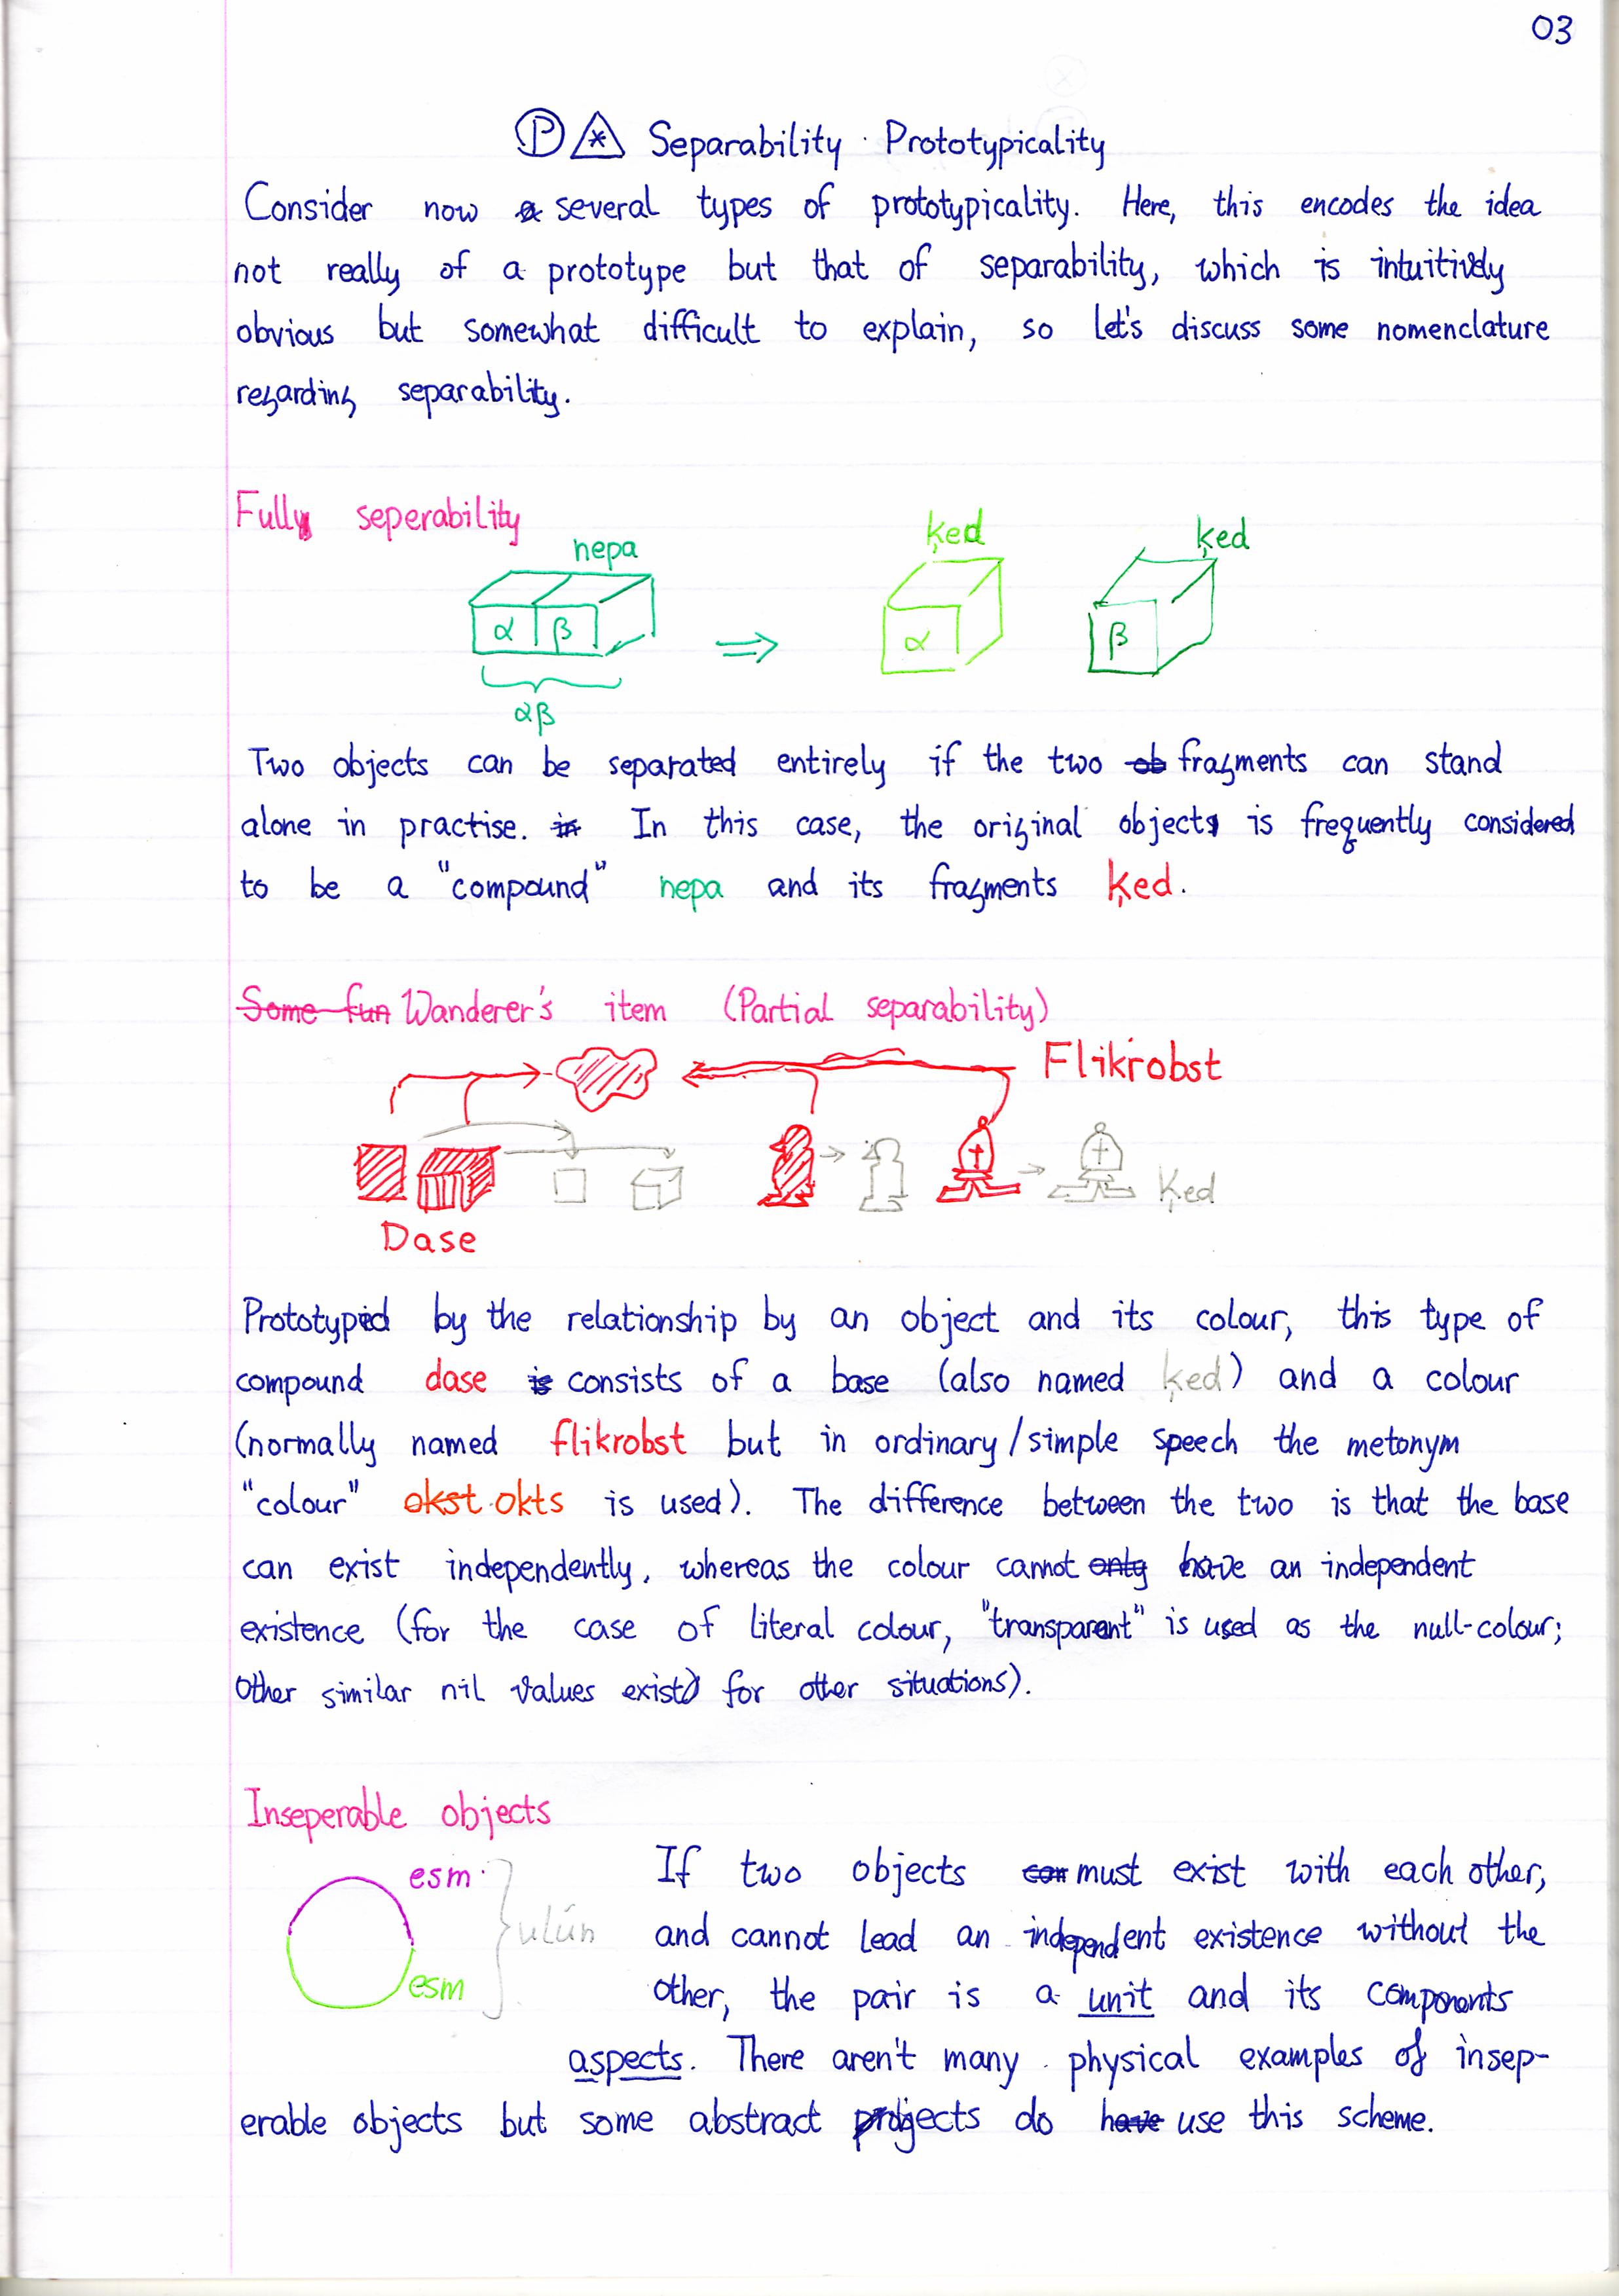 03
Ⓟ Separability · Prototypicality
Consider now several types of prototypicality. Here, this encodes the idea
not really of a prototype but that of separability, which is intuitively
obvious but somewhat difficult to explain, so let's discuss some nomenclature
regarding separability.
Fully seperability
nepa
ķed
ķed
α β
⇒
α
β
αβ
Two objects can be separated entirely if the two ob fragments can stand
alone in practise. in In this case, the original object is frequently considered
to be a "compound" nepa and its fragments ķed.
Some fun Wanderer's item (Partial separability)
Flikrobst
Ķed
Dase
Prototyped by the relationship by an object and its colour, this type of
compound dase is consists of a base (also named ķed) and a colour
(normally named flikrobst but in ordinary/simple speech the metonym
"colour" okst okts is used). The difference between the two is that the base
can exist independently, whereas the colour cannot only have an independent
existence (for the case of literal colour, "transparent" is used as the null-colour;
other similar nil values exist for other situations).
Inseperable objects
esm
ulún
esm
If two objects can must exist with each other,
and cannot lead an independent existence without the
other, the pair is a unit and its components
aspects. There aren't many physical examples of insep-
erable objects but some abstract objects do have use this scheme.